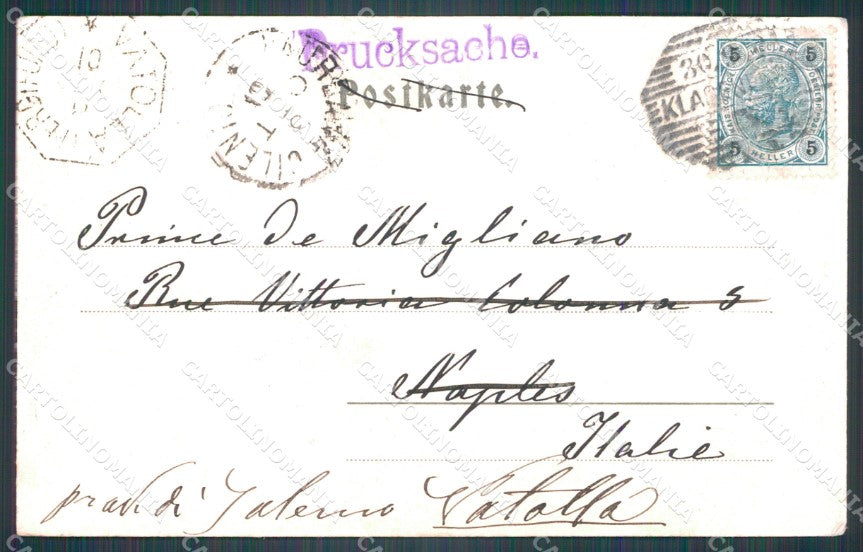 Drucksache.
Postkarte.
5 5
HELLER
5 5
Prince de Migliano
Rue Vittoria Colonna 5
Naples
Italie
di Salerno Vatolla
VATOLLA
CARTOLINOMANIA